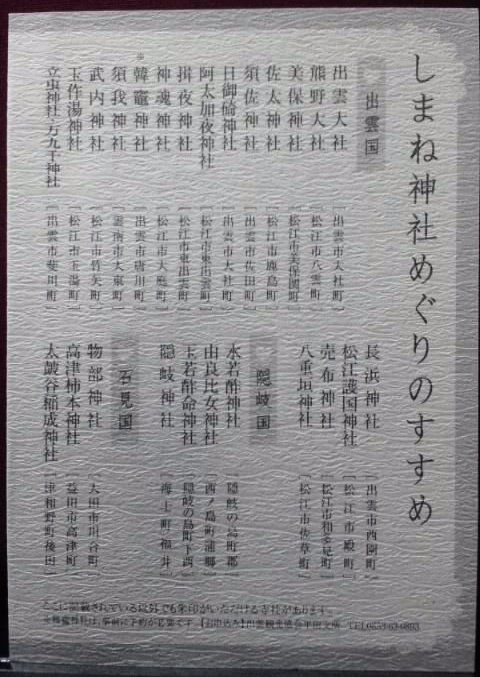 しまね神社めぐりのすすめ
出雲国
出雲大社 [出雲市大社町]
熊野大社 [松江市八雲町]
美保神社 [松江市美保関町]
佐太神社 [松江市鹿島町]
須佐神社 [出雲市佐田町]
日御碕神社 [出雲市大社町]
阿太加夜神社 [松江市東出雲町]
揖夜神社 [松江市東出雲町]
神魂神社 [松江市大庭町]
※韓竈神社 [出雲市唐川町]
須我神社 [雲南市大東町]
武内神社 [松江市竹矢町]
玉作湯神社 [松江市玉湯町]
立虫神社・万九千神社 [出雲市斐川町]
長浜神社 [出雲市西園町]
松江護国神社 [松江市殿町]
売布神社 [松江市和多見町]
八重垣神社 [松江市佐草町]
隠岐国
水若酢神社 [隠岐の島町郡]
由良比女神社 [西ノ島町浦郷]
玉若酢命神社 [隠岐の島町下西]
隠岐神社 [海士町福井]
石見国
物部神社 [大田市川合町]
高津柿本神社 [益田市高津町]
太皷谷稲成神社 [津和野町後田]
ここに記載されている以外でも朱印がいただける寺社があります。
※韓竈神社は、事前に予約が必要です。【お申込み】出雲観光協会平田支所 TEL0853-63-0893